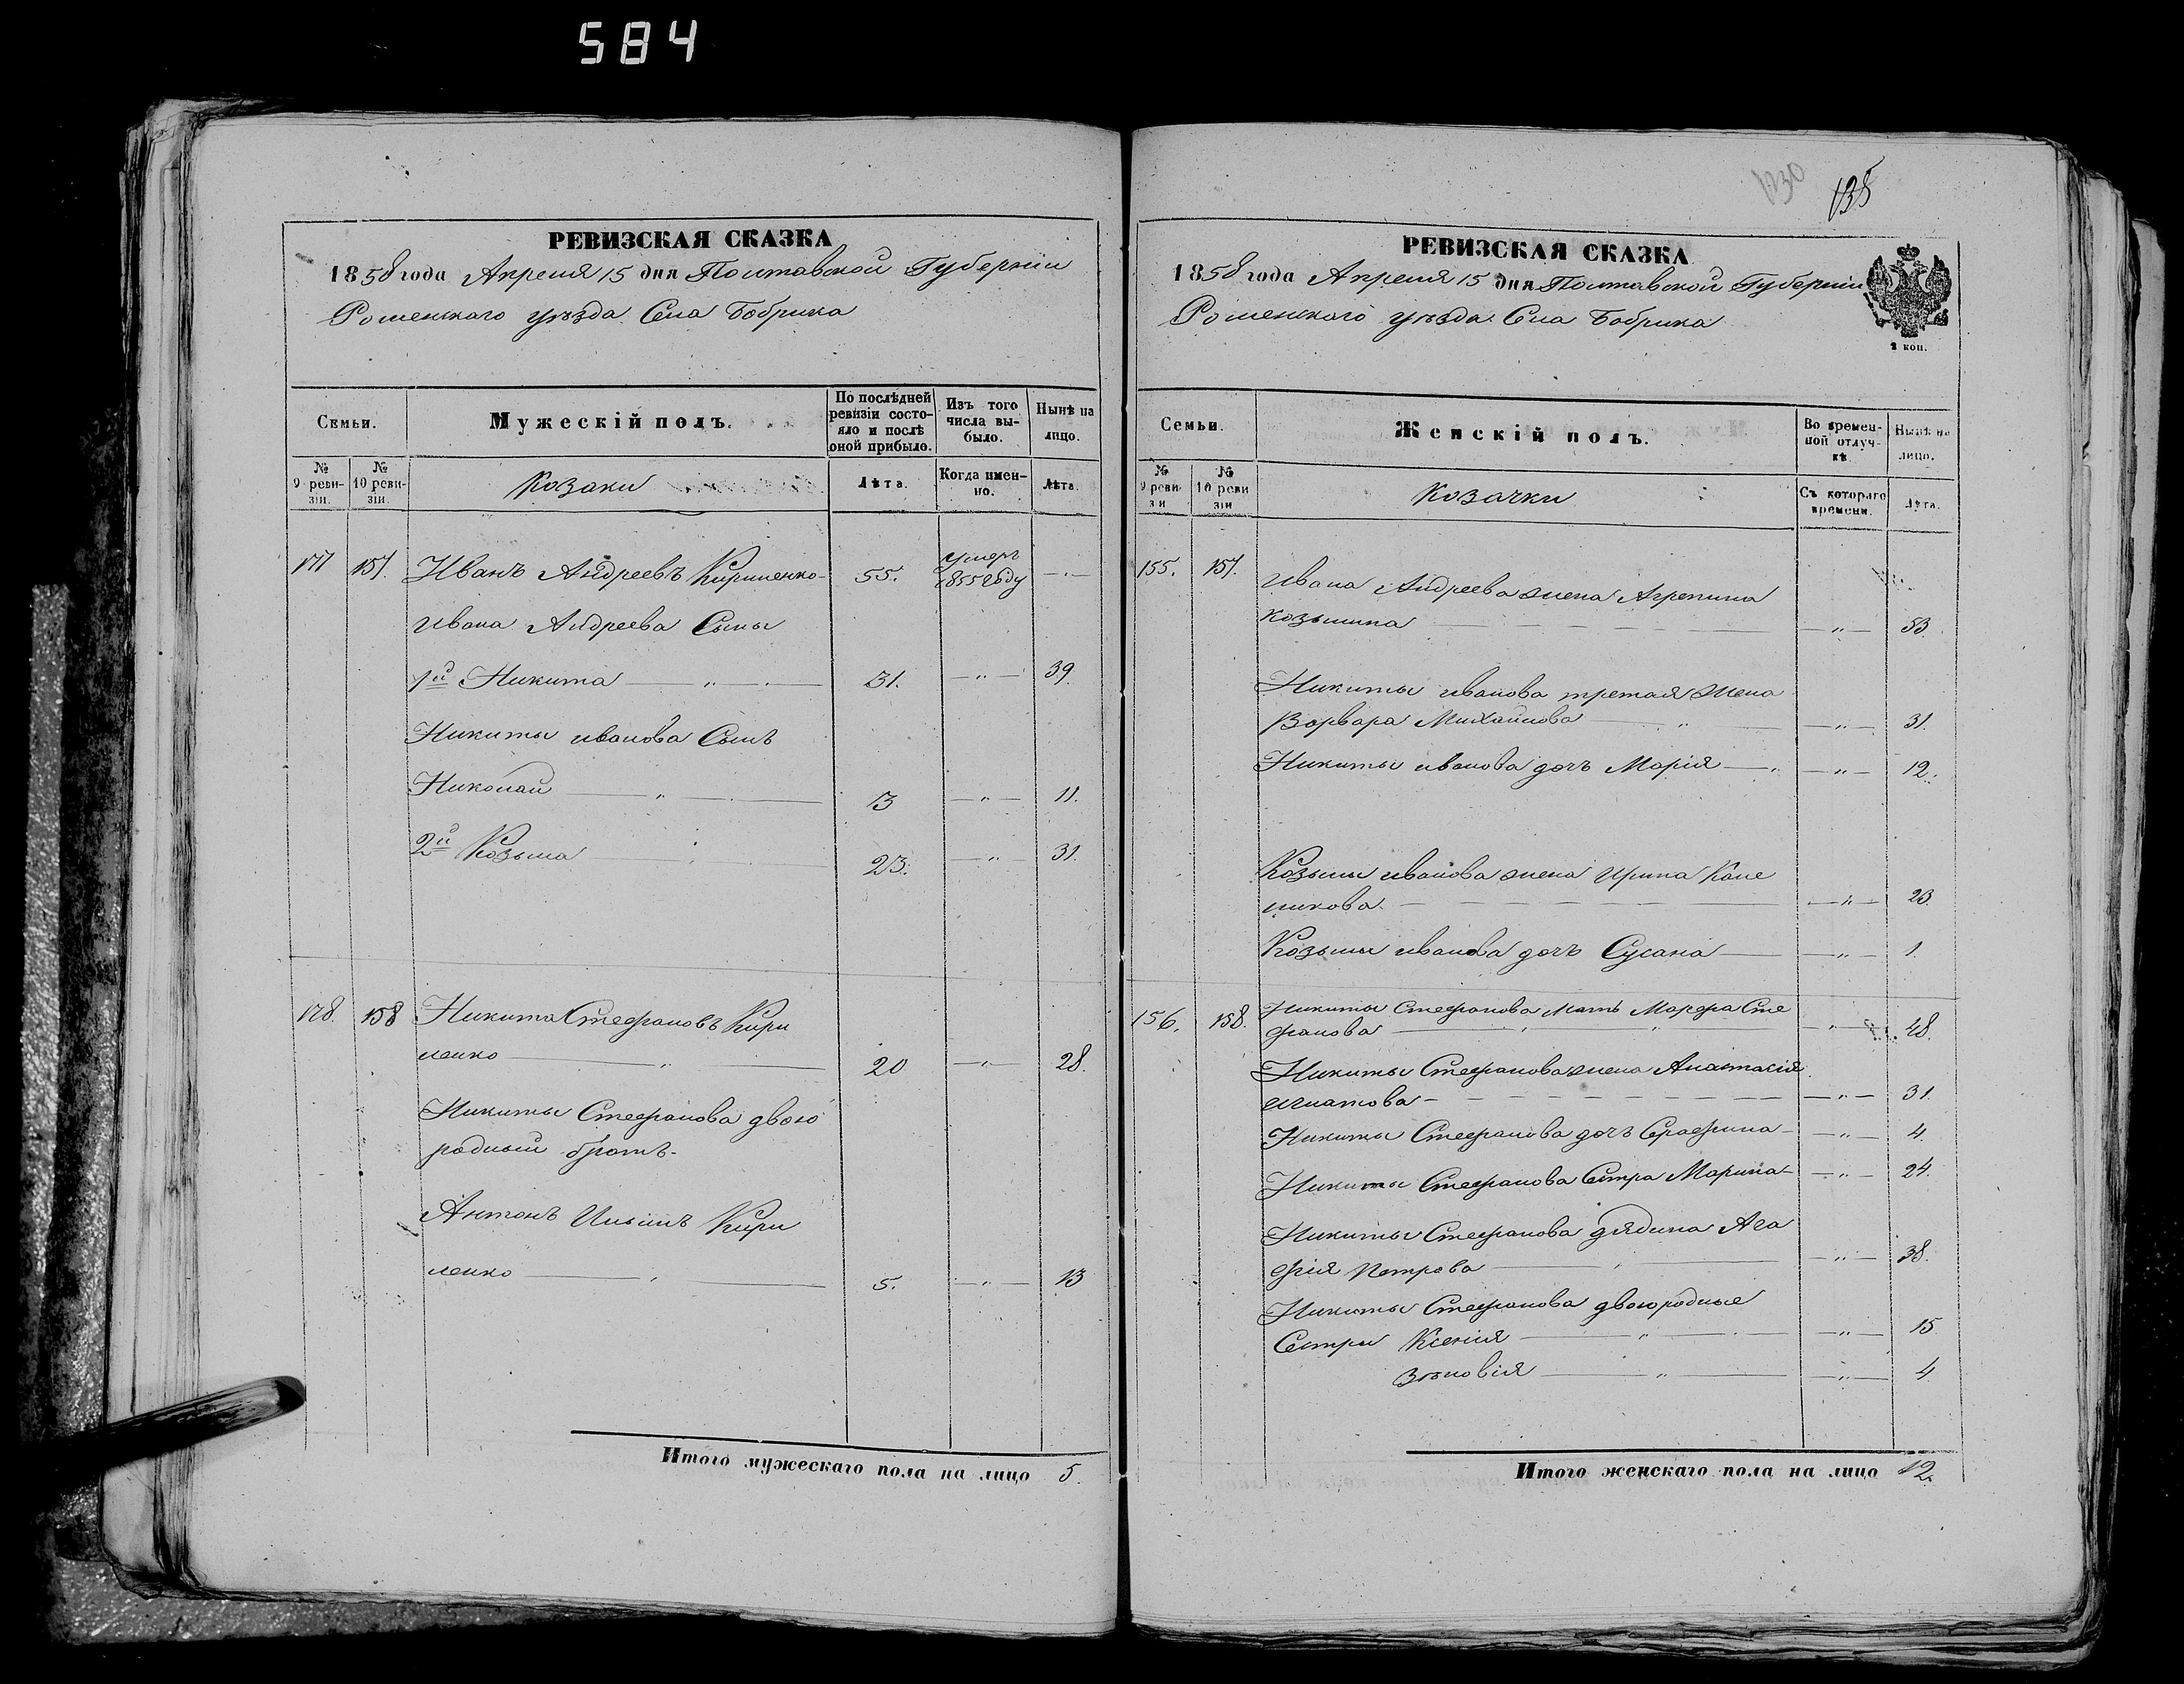 584
РЕВИЗСКАЯ СКАЗКА
1858 года Апреля 15 дня Полтавской Губерніи
Роменскаго уѣзда Села Бобрика
Семьи.
Мужескій полъ.
По послѣдней ревизіи состояло и послѣ оной прибыло.
Изъ того числа выбыло.
Нынѣ на лицо.
№ 9 ревизіи.
№ 10 ревизіи.
Козаки
Лѣта.
Когда именно.
Лѣта.
177 157. Иванъ Андреевъ Кириленко 55. умеръ 1855 году —
Ивана Андреева Сыны
1й Никита — „ — 31. — „ — 39.
Никиты иванова Сынъ
Николай — „ — 13 — „ — 11.
2й Козьма 23. — „ — 31.
178. 158 Никита Стефановъ Кири
ленко — „ — 20 — „ — 28.
Никиты Стефанова двою
родный братъ-
Антонъ Ильинъ Кири
ленко — „ — 5. — „ — 13
Итого мужескаго пола на лицо 5.
130 135
РЕВИЗСКАЯ СКАЗКА
1858 года Апреля 15 дня Полтавской Губерніи
Роменскаго уѣзда Села Бобрика
2 коп.
Семьи.
Женскій полъ.
Во временной отлучкѣ.
Нынѣ на лицо.
№ 9 ревизіи
№ 10 ревизіи
Козачки
Съ котораго времени.
Лѣта.
155. 157. Ивана Андреева жена Агрепина
Козьмина — „ — 53
Никиты иванова третая жена
Ворвара Михайлова — „ — 31.
Никиты иванова дочъ Марія — „ — 12.
Козьмы иванова жена Ирина Кале
никова. — „ — 23.
Козьмы иванова дочъ Сусана — „ — 1.
156. 158. Никиты Стефанова Мать Марфа Сте
фанова — „ — 48.
Никиты Стефанова жена Анастасія
Игнатова — „ — 31.
Никиты Стефанова дочъ Серафина — „ — 4.
Никиты Стефанова Сестра Марина — „ — 24.
Никиты Стефанова дядина Ага
фія Петрова — „ — 38.
Никиты Стефанова двоюродные
Сестри Ксенія — „ — 15
Зѣновія — „ — 4
Итого женскаго пола на лицо 12.